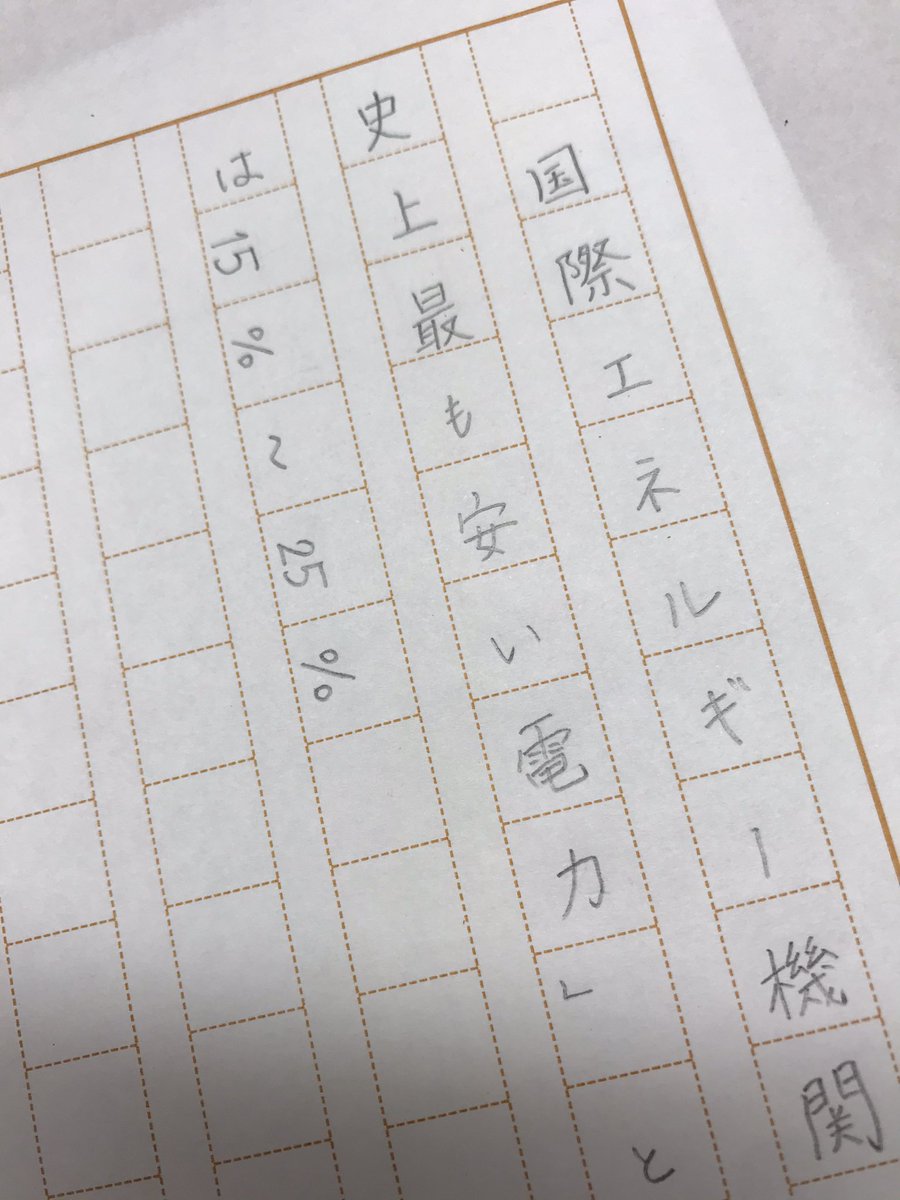 国際エネルギー機関
史上最も安い電力」と
は15%~25%